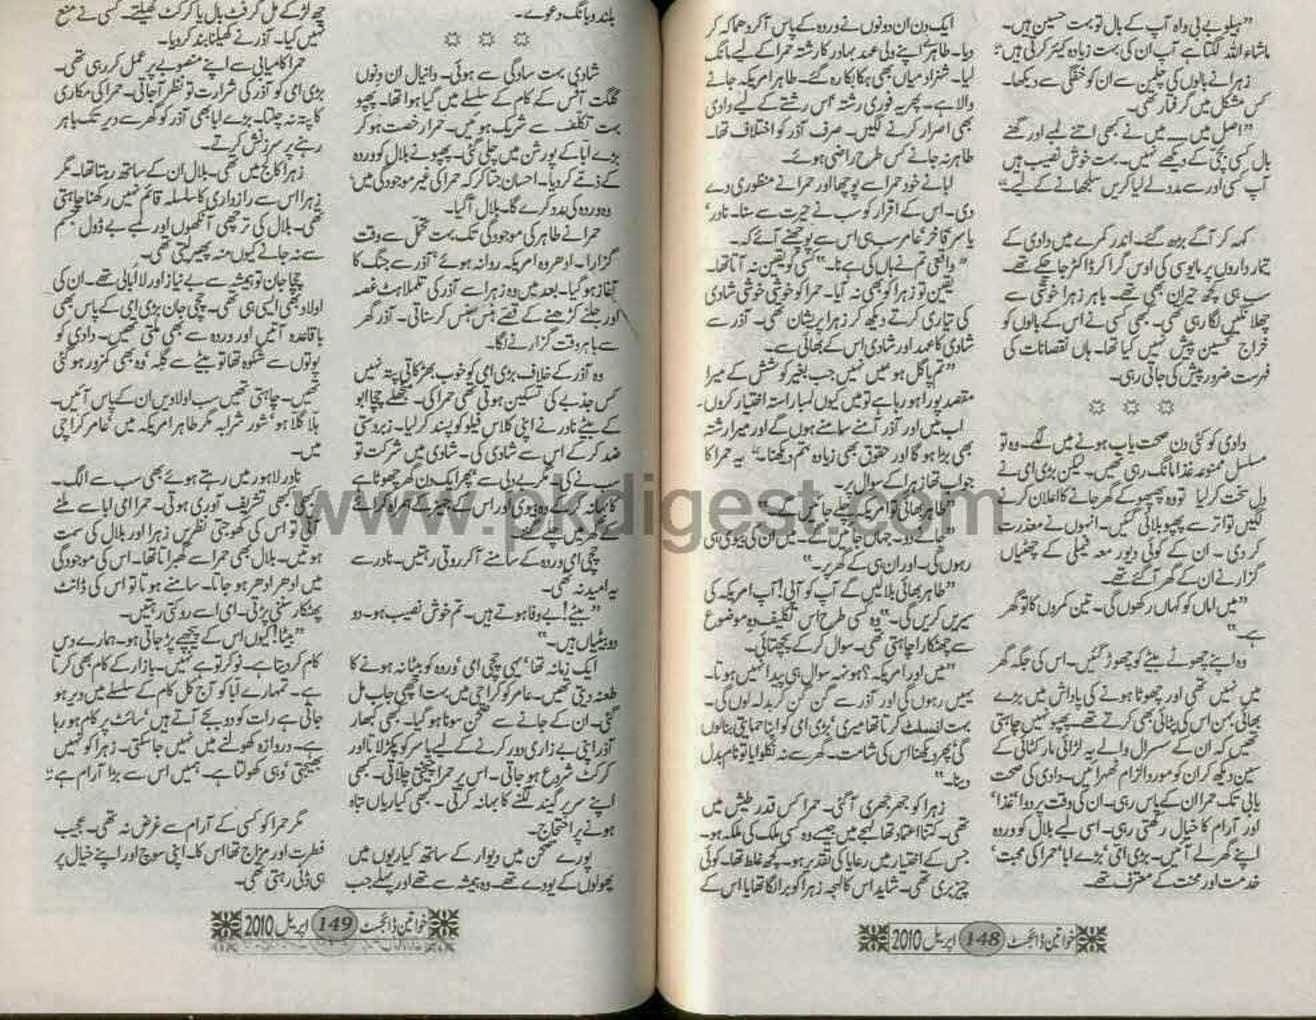 ”ہیلو بے بی واہ آپ کے بال تو بہت حسین ہیں۔
ماشاء اللہ لگتا ہے آپ ان کی بہت زیادہ کیئر کرتی ہیں“
زہرا نے بالوں کی چلمن سے ان کو خفگی سے دیکھا۔
کس مشکل میں گرفتار تھی۔
”اصل میں۔۔ میں نے کبھی اتنے لمبے اور گھنے
بال کسی بچی کے دیکھے نہیں۔ بہت خوش نصیب ہیں
آپ کسی اور سے مدد لے لیا کریں سلجھانے کے لیے“
کہہ کر آگے بڑھ گئے۔ اندر کمرے میں دادی کے
تیمارداروں پر مایوسی کی اوس گرا کر ڈاکٹر جا چکے تھے۔
سب ہی کچھ حیران بھی تھے۔ باہر زہرا خوشی سے
چھلانگیں لگا رہی تھی۔ کبھی کسی نے اس کے بالوں کو
خراج تحسین پیش نہیں کیا تھا۔ ہاں نقصانات کی
فہرست ضرور پیش کی جاتی رہی۔
دادی کو کئی دن صحت یاب ہونے میں لگے۔ وہ تو
مسلسل ممنوعہ غذا مانگ رہی تھیں۔ لیکن بڑی امی نے
دل سخت کر لیا تو وہ پھپھو کے گھر جانے کا اعلان کرنے
لگیں تو اتر سے پھپو بلائی گئیں۔ انہوں نے معذرت
کر دی۔ ان کے کوئی دیور معہ فیملی کے چھٹیاں
گزارنے ان کے گھر آ گئے تھے۔
”میں اماں کو کہاں رکھوں گی۔ تین کمروں کا تو گھر
ہے۔“
وہ اپنے چھوٹے بیٹے کو چھوڑ گئیں۔ اس کی جگہ گھر
میں نہیں تھی اور چھوٹا ہونے کی پاداش میں بڑے
بھائی بہن اس کی پٹائی بھی کرتے تھے۔ پھپو نہیں چاہتی
تھیں کہ ان کے سسرال والے یہ لڑائی مار کٹائی کے
سین دیکھ کر ان کو مورد الزام ٹھہرائیں۔ دادی کی صحت
یابی تک حمرا ان کے پاس رہی۔ ان کی وقت پر دوا‘ غذا‘
اور آرام کا خیال رکھتی رہی۔ اسی لیے بلال کو وردہ
اپنے گھر لے آئیں۔ بڑی امی‘ بڑے ابا‘ حمرا کی محبت‘
خدمت اور محنت کے معترف تھے۔
ایک دن ان دونوں نے وردہ کے پاس آ کر دھماکہ کر
دیا۔ طاہر اپنے ولی عہد بہادر کا رشتہ حمرا کے لیے مانگ
لیا۔ شہزاد میاں بھی ہکا بکا رہ گئے۔ طاہر امریکہ جانے
والا ہے۔ پھر یہ فوری رشتہ‘ اس رشتے کے لیے دادی
بھی اصرار کرنے لگیں۔ صرف آذر کو اختلاف تھا۔
طاہر نہ جانے کس طرح راضی ہوئے۔
ابا نے خود حمرا سے پوچھا اور حمرا نے منظوری دے
دی۔ اس کے اقرار کو سب نے حیرت سے سنا۔ نادر‘
یاسر‘ فاخر‘ عامر سب ہی اس سے پوچھنے آئے کہ۔
”واقعی تم نے ہاں کی ہے نا۔“ کسی کو یقین نہ آتا تھا۔
یقین تو زہرا کو بھی نہ آیا۔ حمرا کو خوشی خوشی شادی
کی تیاری کرتے دیکھ کر زہرا پریشان تھی۔ آذر سے
شادی کا عہد اور شادی اس کے بھائی سے۔
”تم پاگل ہو میں نہیں جب بغیر کوشش کے میرا
مقصد پورا ہو رہا ہے تو میں کیوں لمبا راستہ اختیار کروں۔
اب میں اور آذر آمنے سامنے ہوں گے اور میرا رشتہ
بھی بڑا ہو گا اور حقوق بھی زیادہ‘ تم دیکھنا۔“ یہ حمرا کا
جواب تھا زہرا کے سوال پر۔
”طاہر بھائی تو امریکہ چلے جائیں گے۔“
”جانے دو۔ جہاں جائیں گے۔ میں ان کی بیوی ہی
رہوں گی۔ اور ان ہی کے گھر پر۔“
”طاہر بھائی بلالیں گے آپ کو آپی! آپ امریکہ کی
سیریں کریں گی۔“ وہ کسی طرح اس تکلیف دہ موضوع
سے چھٹکارا چاہتی تھی۔ سوال کر کے پچھتائی۔
”میں اور امریکہ۔؟ ہونہہ سوال ہی پیدا نہیں ہوتا۔
یہیں رہوں گی اور آذر سے گن گن کر بدلہ لوں گی۔
بہت انسلٹ کرتا تھا میری‘ بڑی امی کو اپنا حمایتی بنالوں
گی‘ پھر دیکھنا اس کی شامت۔ گھر سے نہ نکلوایا تو نام بدل
دینا۔“
زہرا کو جھرجھری آ گئی۔ حمرا کس قدر طیش میں
تھی۔ کتنا اعتماد تھا لہجے میں جیسے وہ کسی ملک کی ملکہ ہو۔
جس کے اختیار میں رعایا کی تقدیر ہو۔ کچھ غلط تھا۔ کوئی
چیز بری تھی۔ شاید اس کا لہجہ زہرا کو برا لگا تھا یا اس کے
خواتین ڈائجسٹ 148 اپریل 2010
بلند و بانگ دعوے۔
شادی بہت سادگی سے ہوئی۔ دانیال ان دونوں
گلگت آفس کے کام کے سلسلے میں گیا ہوا تھا۔ پھپو
بہت تکلف سے شریک ہوئیں۔ حمرا رخصت ہو کر
بڑے ابا کے پورشن میں چلی گئی۔ پھپو نے بلال کو وردہ
کے ذمے کر دیا۔ احسان جتا کر کہ حمرا کی غیر موجودگی میں
وہ وردہ کی مدد کرے گا۔ بلال آ گیا۔
حمرا نے طاہر کی موجودگی تک بہت تحمل سے وقت
گزارا۔ ادھر وہ امریکہ روانہ ہوئے‘ آذر سے جنگ کا
آغاز ہو گیا۔ بعد میں وہ زہرا سے آذر کی تلملاہٹ غصہ
اور جلنے کڑھنے کے قصے ہنس ہنس کر سناتی۔ آذر گھر
سے باہر وقت گزارنے لگا۔
وہ آذر کے خلاف بڑی امی کو خوب بھڑکاتی پتہ نہیں
کس جذبے کی تسکین ہوتی تھی حمرا کی۔ منجھلے چچا ابو
کے بیٹے نادر نے اپنی کلاس فیلو کو پسند کر لیا۔ زبردستی
ضد کر کے اس سے شادی کی۔ شادی میں شرکت تو
سب نے کی۔ مگر بے دلی سے پھر ایک دن گھر چھوٹا ہے
کا بہانہ کر کے وہ بیوی اور اس کے جہیز کے ہمراہ کرائے
کے گھر میں چلے گئے۔
چچی امی وردہ کے سامنے آ کر روتی رہتیں۔ نادر سے
یہ امید نہ تھی۔
”بیٹے! بے وفا ہوتے ہیں۔ تم خوش نصیب ہو۔ دو
دو بیٹیاں ہیں۔“
ایک زمانہ تھا‘ یہی چچی امی‘ وردہ کو بیٹا نہ ہونے کا
طعنہ دیتی تھیں۔ عامر کو کراچی میں بہت اچھی جاب مل
گئی۔ ان کے جانے سے صحن سونا ہو گیا۔ کبھی کبھار
آذر اپنی بے زاری دور کرنے کے لیے یاسر کو پکڑ لاتا اور
کرکٹ شروع ہو جاتی۔ اس پر حمرا چیختی چلاتی۔ کبھی
اپنے سر پر گیند لگنے کا بہانہ کرتی۔ کبھی کیاریاں تباہ
ہونے پر احتجاج۔
پورے صحن میں دیوار کے ساتھ کیاریوں میں
پھولوں کے پودے تھے۔ وہ ہمیشہ سے تھے اور پہلے جب
چھ لڑکے مل کر فٹ بال یا کرکٹ کھیلتے۔ کسی نے منع
نہیں کیا۔ آذر نے کھیلنا بند کر دیا۔
حمرا کامیابی سے اپنے منصوبے پر عمل کر رہی تھی۔
بڑی امی کو آذر کی شرارت تو نظر آ جاتی۔ حمرا کی مکاری
کا پتہ نہ چلتا۔ بڑے ابا بھی آذر کو گھر سے دیر تک باہر
رہنے پر سرزنش کرتے۔
زہرا کالج میں تھی۔ بلال ان کے ساتھ رہتا تھا۔ مگر
زہرا اس سے رازداری کا سلسلہ قائم نہیں رکھنا چاہتی
تھی۔ بلال کی ترچھی آنکھوں اور لمبے بے ڈول جسم
سے نہ جانے کیوں منہ پھیر لیتی تھی۔
چچا جان تو ہمیشہ سے بے نیاز اور لا ابالی تھے۔ ان کی
اولاد بھی ایسی ہی تھی۔ چچی جان بڑی امی کے پاس بھی
باقاعدہ آتیں اور وردہ سے بھی ملتی تھیں۔ دادی کو
پوتوں سے شکوہ تھا تو بیٹے سے گلہ‘ وہ بھی کمزور ہو گئی
تھیں۔ چاہتی تھیں سب اولادیں ان کے پاس آئیں۔
ہلا گلا ہو‘ شور شرابہ مگر طاہر امریکہ میں‘ عامر کراچی
میں۔
نادر لاہور میں رہتے ہوئے بھی سب سے الگ۔
کبھی کبھی تشریف آوری ہوتی۔ حمرا امی ابا سے ملنے
آتی تو اس کی کھوجتی نظریں زہرا اور بلال کی سمت
ہوتیں۔ بلال بھی حمرا سے گھبراتا تھا۔ اس کی موجودگی
میں ادھر ادھر ہو جاتا۔ سامنے ہوتا تو اس کی ڈانٹ
پھٹکار سننی پڑتی۔ امی اسے روکتی رہتیں۔
”بیٹا! کیوں اس کے پیچھے پڑ جاتی ہو۔ ہمارے دس
کام کر دیتا ہے۔ نوکر تو ہے نہیں۔ بازار کے کام بھی کرتا
ہے۔ تمہارے ابا کو آج کل کام کے سلسلے میں دیر ہو
جاتی ہے رات کو دو بجے آتے ہیں‘ سائٹ پر کام ہو رہا
ہے۔ دروازہ کھولنے میں نہیں جا سکتی۔ زہرا کو نہیں
بھیجتی‘ وہی کھولتا ہے۔ ہمیں اس سے بڑا آرام ہے“
مگر حمرا کو کسی کے آرام سے غرض نہ تھی۔ عجیب
فطرت اور مزاج تھا اس کا۔ اپنی سوچ اور اپنے خیال پر
ہی ڈٹی رہتی تھی۔
خواتین ڈائجسٹ 149 اپریل 2010
www.pkdigest.com